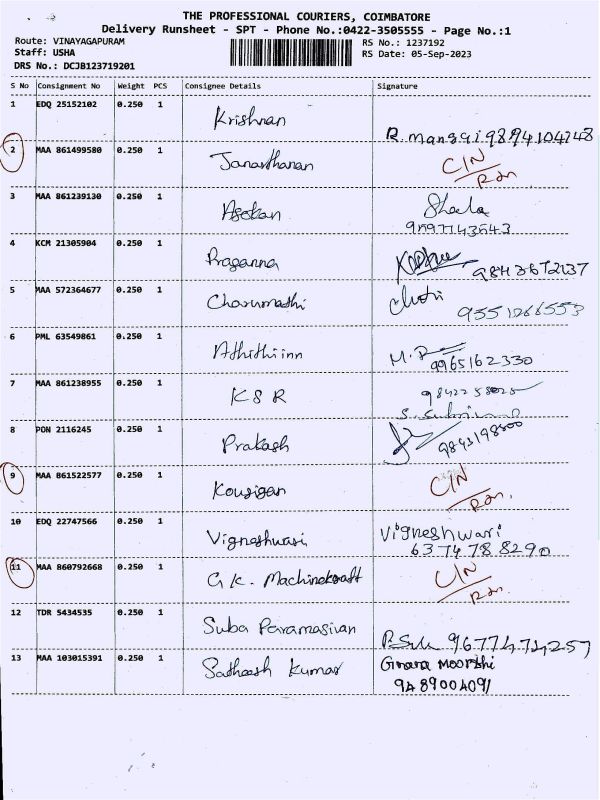 THE PROFESSIONAL COURIERS, COIMBATORE
Delivery Runsheet - SPT - Phone No.:0422-3505555 - Page No.:1
Route: VINAYAGAPURAM RS No.: 1237192
Staff: USHA RS Date: 05-Sep-2023
DRS No.: DCJB123719201
S No Consignment No Weight PCS Consignee Details Signature
1 EDQ 25152102 0.250 1 Krishnan
R. mangai 9894104748
2 MAA 861499580 0.250 1 Janarthanan C/N
3 MAA 861239130 0.250 1 Asokan
4 KCM 21305904 0.250 1 Praganna
5 MAA 572364677 0.250 1 Charumathi
9551266553
6 PML 63549861 0.250 1 Athithiinn
9965162330
7 MAA 861238955 0.250 1 K S R
8 PON 2116245 0.250 1 Prakash
9 MAA 861522577 0.250 1 Kousigan C/N
10 EDQ 22747566 0.250 1 Vigneshwari Vigneshwari
6374788290
11 MAA 860792668 0.250 1 G.K. Machinekraft C/N
12 TDR 5434535 0.250 1 Suba Paramasivan
9677474257
13 MAA 103015391 0.250 1 Satheesh Kumar Gnana Moorthi
9489004091